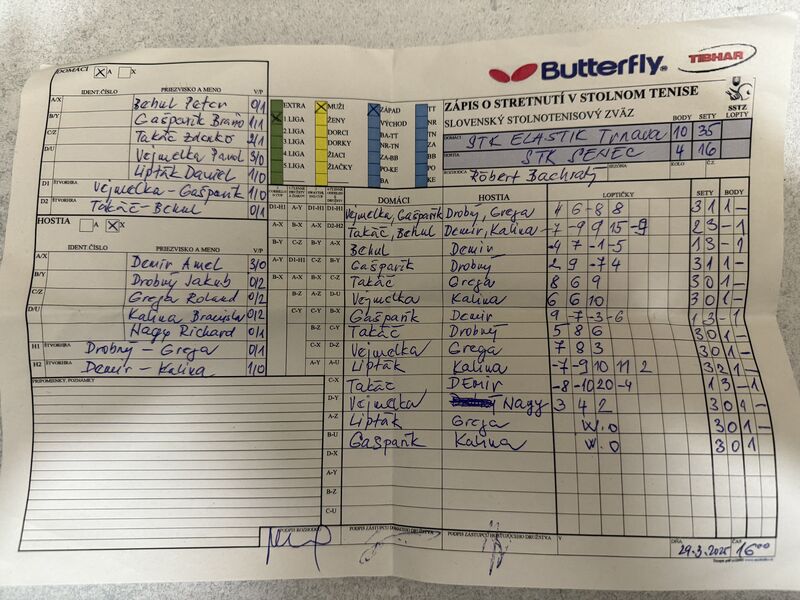 Butterfly
TIBHAR
ZÁPIS O STRETNUTÍ V STOLNOM TENISE
SLOVENSKÝ STOLNOTENISOVÝ ZVÄZ
BODY SETY SSTZ LOPTY
DOMÁCI STK ELASTIK Trnava 10 35
HOSTIA STK SENEC 4 16
ROZHODCA SEZÓNA KOLO Č.Z.
Róbert Bachratý
DOMÁCI X A X
IDENT.ČÍSLO PRIEZVISKO A MENO V/P
A/X Behul Peter 0/1
B/Y Gašparík Braňo 1/1
C/Z Takáč Zdenko 2/1
D/U Vejmelka Pavol 3/0
Lipták Daniel 1/0
D1 ŠTVORHRA Vejmelka - Gašparík 1/0
D2 ŠTVORHRA Takáč - Behul 0/1
HOSTIA A X X
IDENT.ČÍSLO PRIEZVISKO A MENO V/P
A/X Demír Amel 3/0
B/Y Drobný Jakub 0/2
C/Z Grega Roland 0/2
D/U Kalina Branislav 0/2
Nagy Richard 0/1
H1 ŠTVORHRA Drobný - Grega 0/1
H2 ŠTVORHRA Demír - Kalina 1/0
PRIPOMIENKY, POZNÁMKY
EXTRA X MUŽI X ZÁPAD TT
1.LIGA ŽENY VÝCHOD NR
2.LIGA DORCI BA-TT TN
3.LIGA DORKY NR-TN ZA
4.LIGA ŽIACI ZA-BB BB
5.LIGA ŽIAČKY PO-KE PO
BA KE
DOMÁCI HOSTIA LOPTIČKY SETY BODY
D1-H1 A-Y D1-H1 D1-H1 Vejmelka, Gašparík Drobný, Grega 4 6 -8 8 3 1 1 -
A-X B-X A-X D2-H2 Takáč, Behul Demír, Kalina -7 -9 9 15 -9 2 3 - 1
B-Y C-Z B-Y A-X Behul Demír -4 7 -1 -5 1 3 - 1
A-Y D1-H1 C-Z B-Y Gašparík Drobný 2 9 -7 4 3 1 1 -
B-X A-X B-X C-Z Takáč Grega 8 6 9 3 0 1 -
B-Z A-Z D-U Vejmelka Kalina 6 6 10 3 0 1 -
C-Y C-Y B-X Gašparík Demír 9 -7 -3 -6 1 3 - 1
B-Z C-Y Takáč Drobný 5 8 6 3 0 1 -
C-X D-Z Vejmelka Grega 7 8 3 3 0 1 -
A-Y A-U Lipták Kalina -7 -9 10 11 2 3 2 1 -
C-X Takáč DEmír -8 -10 20 -4 1 3 - 1
D-Y Vejmelka Nagy 3 4 2 3 0 1 -
A-Z Lipták Grega W.O 3 0 1 -
B-U Gašparík Kalina W.O 3 0 1 -
D-X
A-Y
B-Z
C-U
PODPIS ROZHODCU PODPIS ZÁSTUPCU DOMÁCEHO DRUŽSTVA PODPIS ZÁSTUPCU HOSŤUJÚCEHO DRUŽSTVA V DŇA ČAS
29.3.2025 16°°